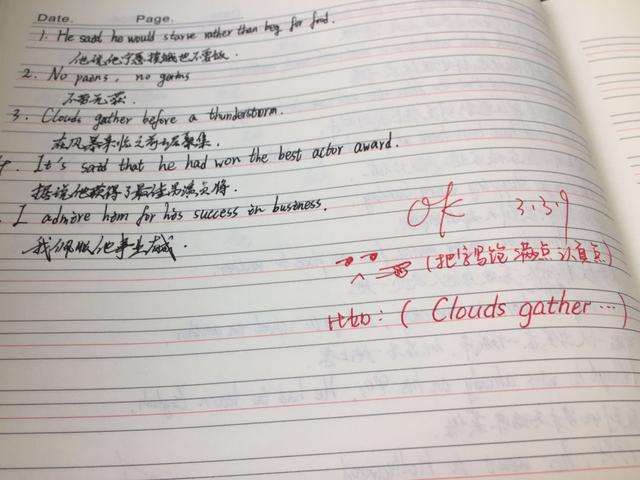 Date. Page.
1. He said he would starve rather than beg for food.
他说他宁愿挨饿也不要饭.
2. No pains, no gains
不劳无获.
3. Clouds gather before a thunderstorm.
在风暴来临之前云层聚集.
. It's said that he had won the best actor award.
据说他获得了最佳男演员奖.
. I admire him for his success in business.
我佩服他事业有成.
Ok 3.3.9
(把字写饱满点认真点)
: ( Clouds gather … )